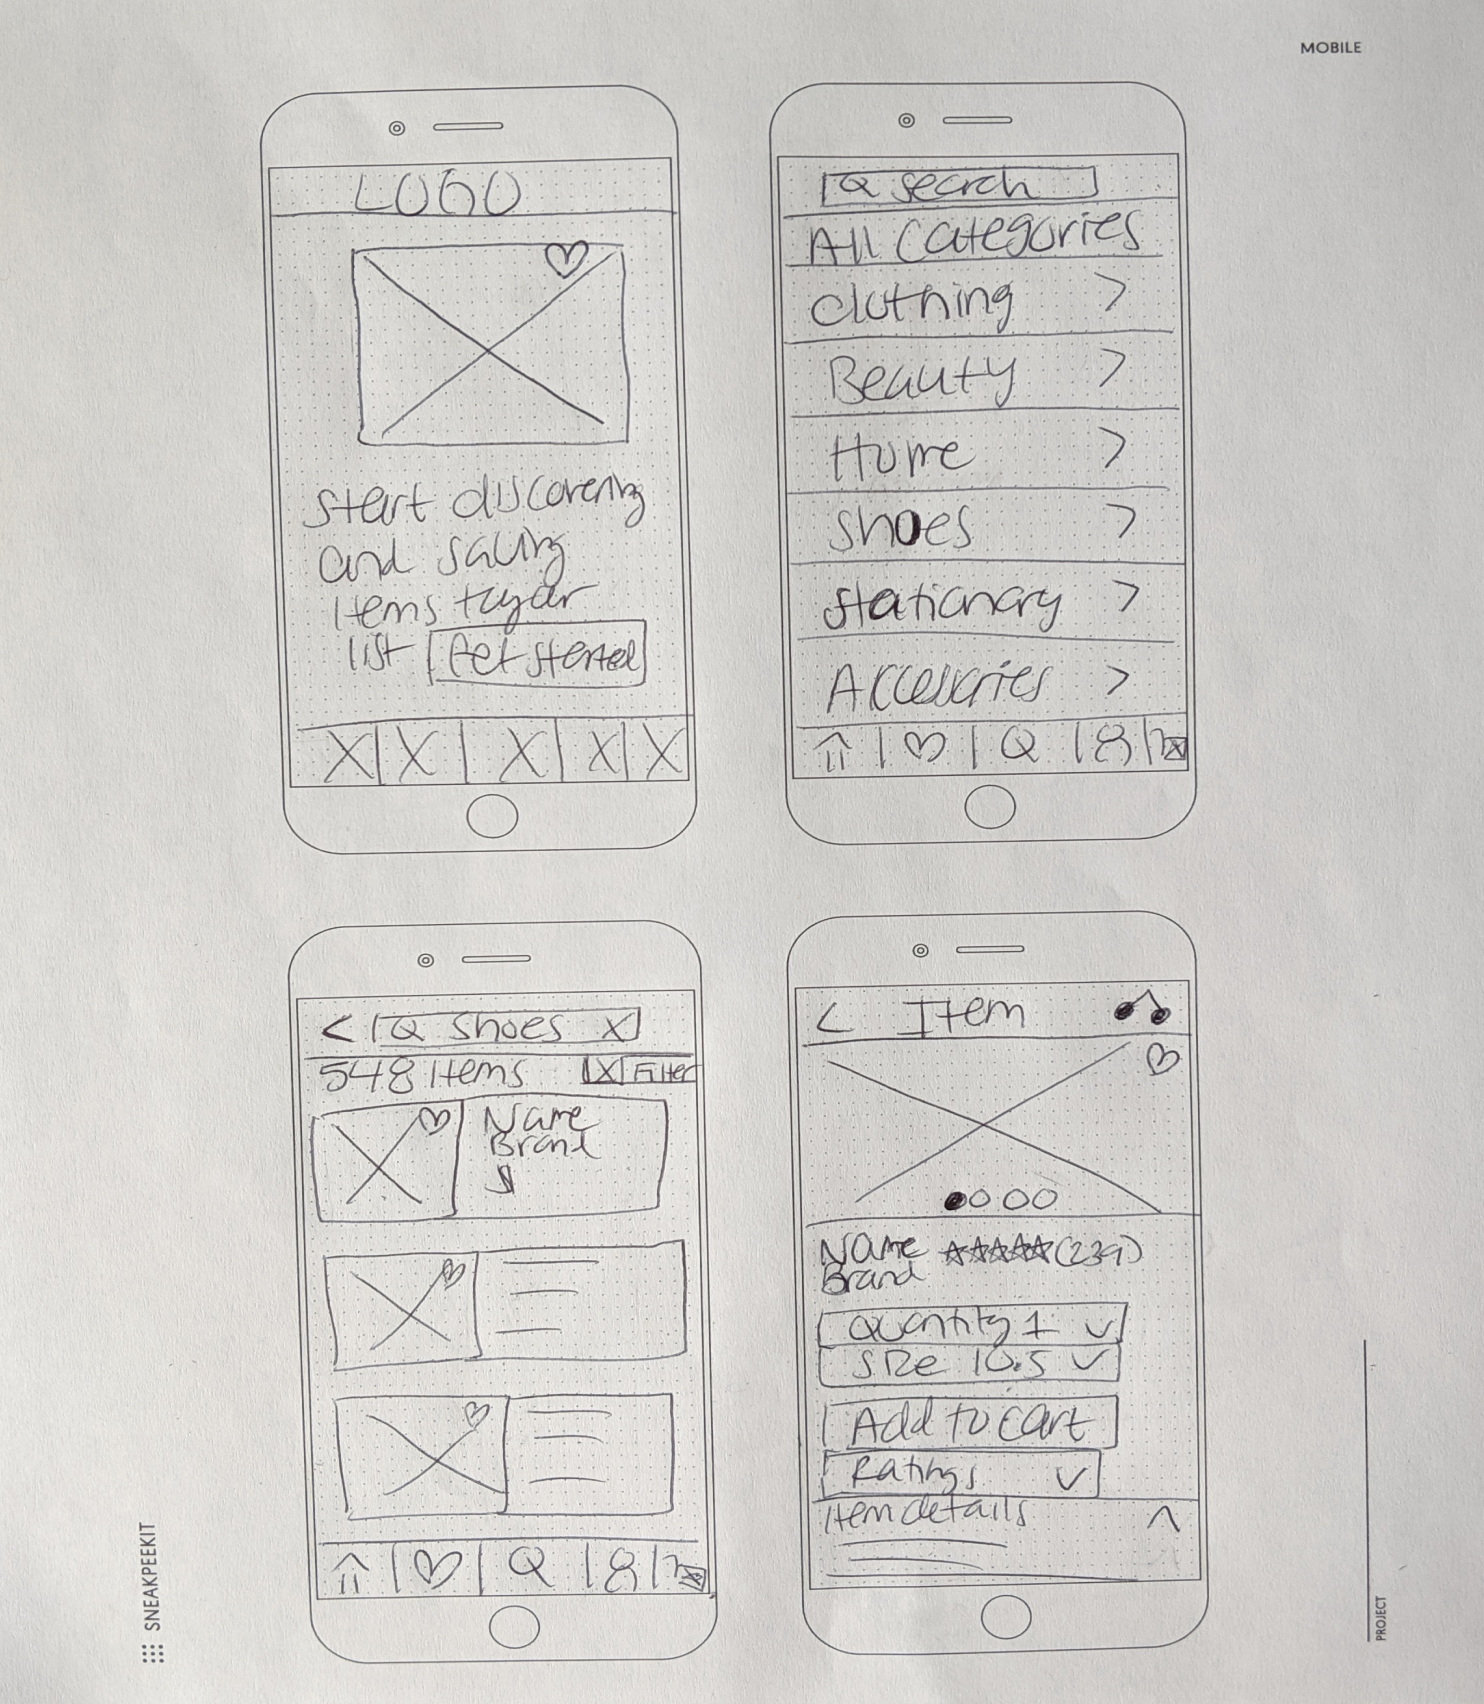 MOBILE
LOGO
start discovering
and saving
items to your
list Get started
search
All Categories
clothing
Beauty
Home
shoes
stationary
Accessories
shoes X
548 items Filter
Name
Brand
$
Item
Name (239)
Brand
Quantity 1
Size 10.5
Add to cart
Ratings
Item details
SNEAKPEEKIT
PROJECT